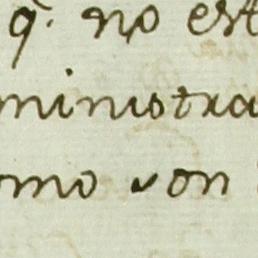 q. no est
ministra
omo son